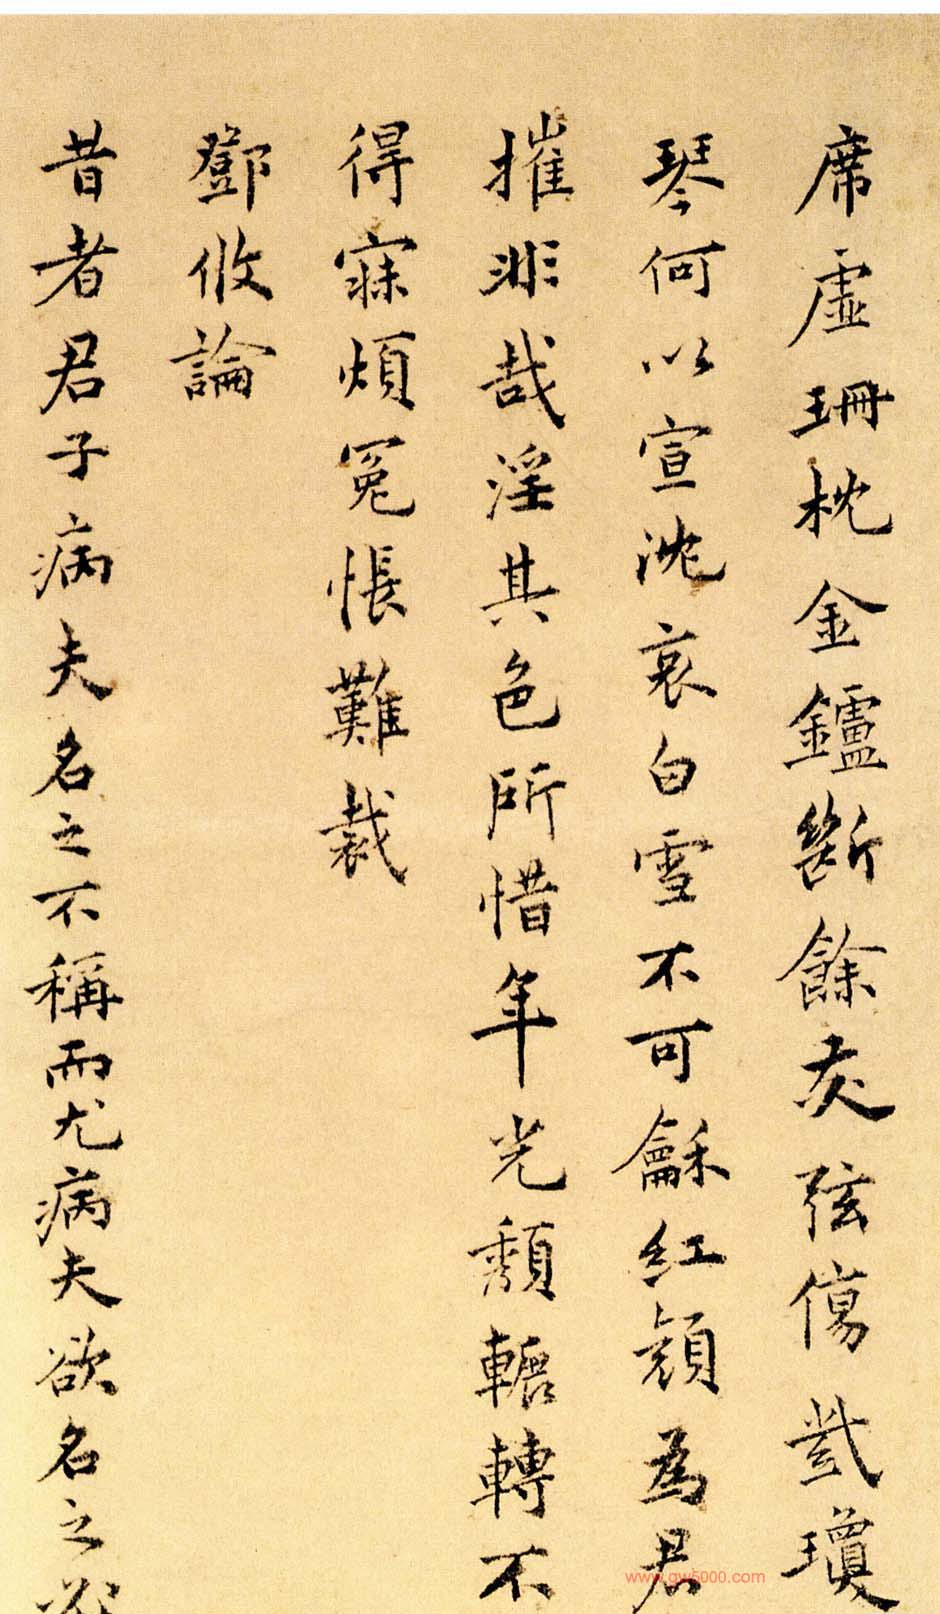 席虛珊枕金鑪斷餘灰弦傷
瓊
琴何以宣沈哀白雪不可龢紅顏為君
摧非哉淫其色所惜年光頹轆轉不
得寐煩冤悵難裁
鄧攸論
昔者君子病夫名之不稱而尤病夫欲名之
www.gw5000.com